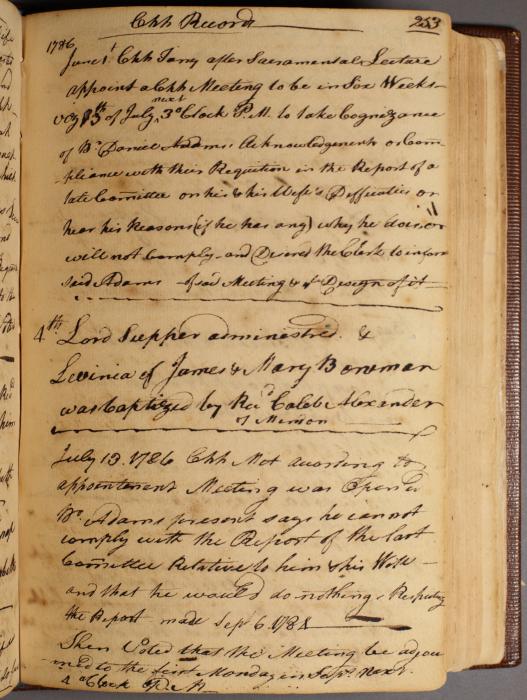 Chh Records 253
1786
June 1st Chh Tarry after Sacramental Lecture
appoint a Chh Meeting to be in Six Weeks -
viz 13th of July next 3 o Clock P.M. to take Cognizance
of Br. Daniel Addms Acknowledgement or Com-
pliance with their Requition in the Report of a
late Committee on his & his Wife's Difficulties or
hear his Reasons (if he has any) why he does or
will not Comply - and Desired the Clerk to inform
said Adams of sad Meeting & ye Design of it -
4th Lord Supper administred. &
Levinia of James & Mary Bowman
was baptized by Revd Caleb Alexender
of Mendon
July 13. 1786 Chh Met acording to
appointment Meeting was Opend
Br. Adams present says he cannot
comply with the Report of the last
Committee Relative to him & his Wife -
and that he would do nothing - Respecting
the Report made Sepr 6. 1784
Then Voted that the Meeting be adjou
rned to the first Monday in Sepr. Next
4 o Clock P. M.